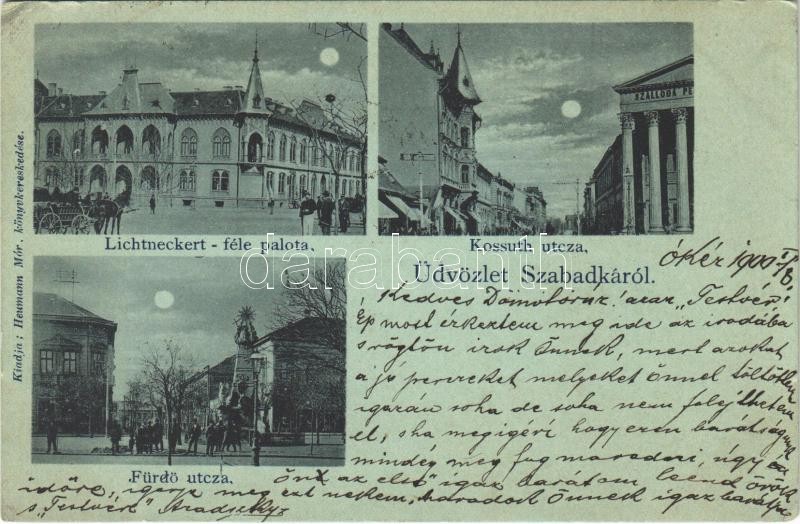 SZÁLLODA PE
Lichtneckert - féle palota.
Kossuth utcza.
Kiadja: Heumann Mór, könyvkereskedése.
darabanth
Üdvözlet Szabadkáról.
Fürdö utcza.
Ókér 1900 I/8.
Kedves "Testvér"!
Ép most érkeztem meg ide az irodába
s rögtön irok Önnek, mert azokat
a jó perczeket melyeket Önnel töltöttem
igazán soha de soha nem felejthetem
el, s ha megigéri hogy ezen barátságunk
mindég meg fog maradni, úgy én
Önt az első igaz barátom leend örök
időre, igérje meg ezt nekem, maradok Önnek igaz barátja
s "Testvére"